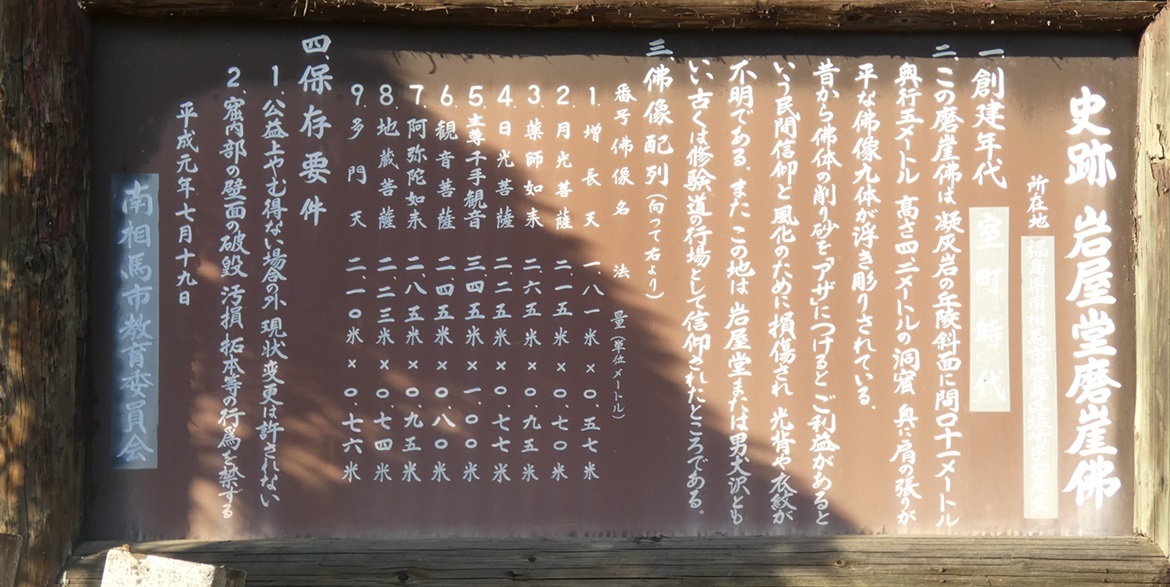 史跡 岩屋堂磨崖佛
所在地 福島県南相馬市鹿島区
一、創建年代 室町時代
二、この磨崖佛は 凝灰岩の丘陵斜面に間口十一メートル
奥行五メートル 高さ四、二メートルの洞窟 奥に肩の張りが
平な佛像九体が浮き彫りされている．
昔から佛体の削り砂を「アザ」につけると ご利益があると
いう民間信仰と 風化のために損傷され 光背や衣紋が
不明である．また この地は 岩屋堂または男大沢とも
いい、古くは修験道の行場として信仰されたところである．
三、佛像配列（向って右より）
番号 佛像名 法量（単位 メートル）
1．増長天 一、八一米×〇、五七米
2．月光菩薩 二、一五米×〇、七〇米
3．薬師如来 二、六五米×〇、九五米
4．日光菩薩 二、二五米×〇、七七米
5．主尊千手観音 三、四五米×一、〇〇米
6．観音菩薩 二、四五米×〇、八〇米
7．阿弥陀如来 二、八五米×〇、九五米
8．地蔵菩薩 二、二三米×〇、七四米
9．多門天 二、一〇米×〇、七六米
四、保存要件
1．公益上やむ得ない場合の外 現状変更は許されない
2．窟内部の壁面の破毀 汚損 拓本等の行為を禁ずる
平成元年七月十九日
南相馬市教育委員会